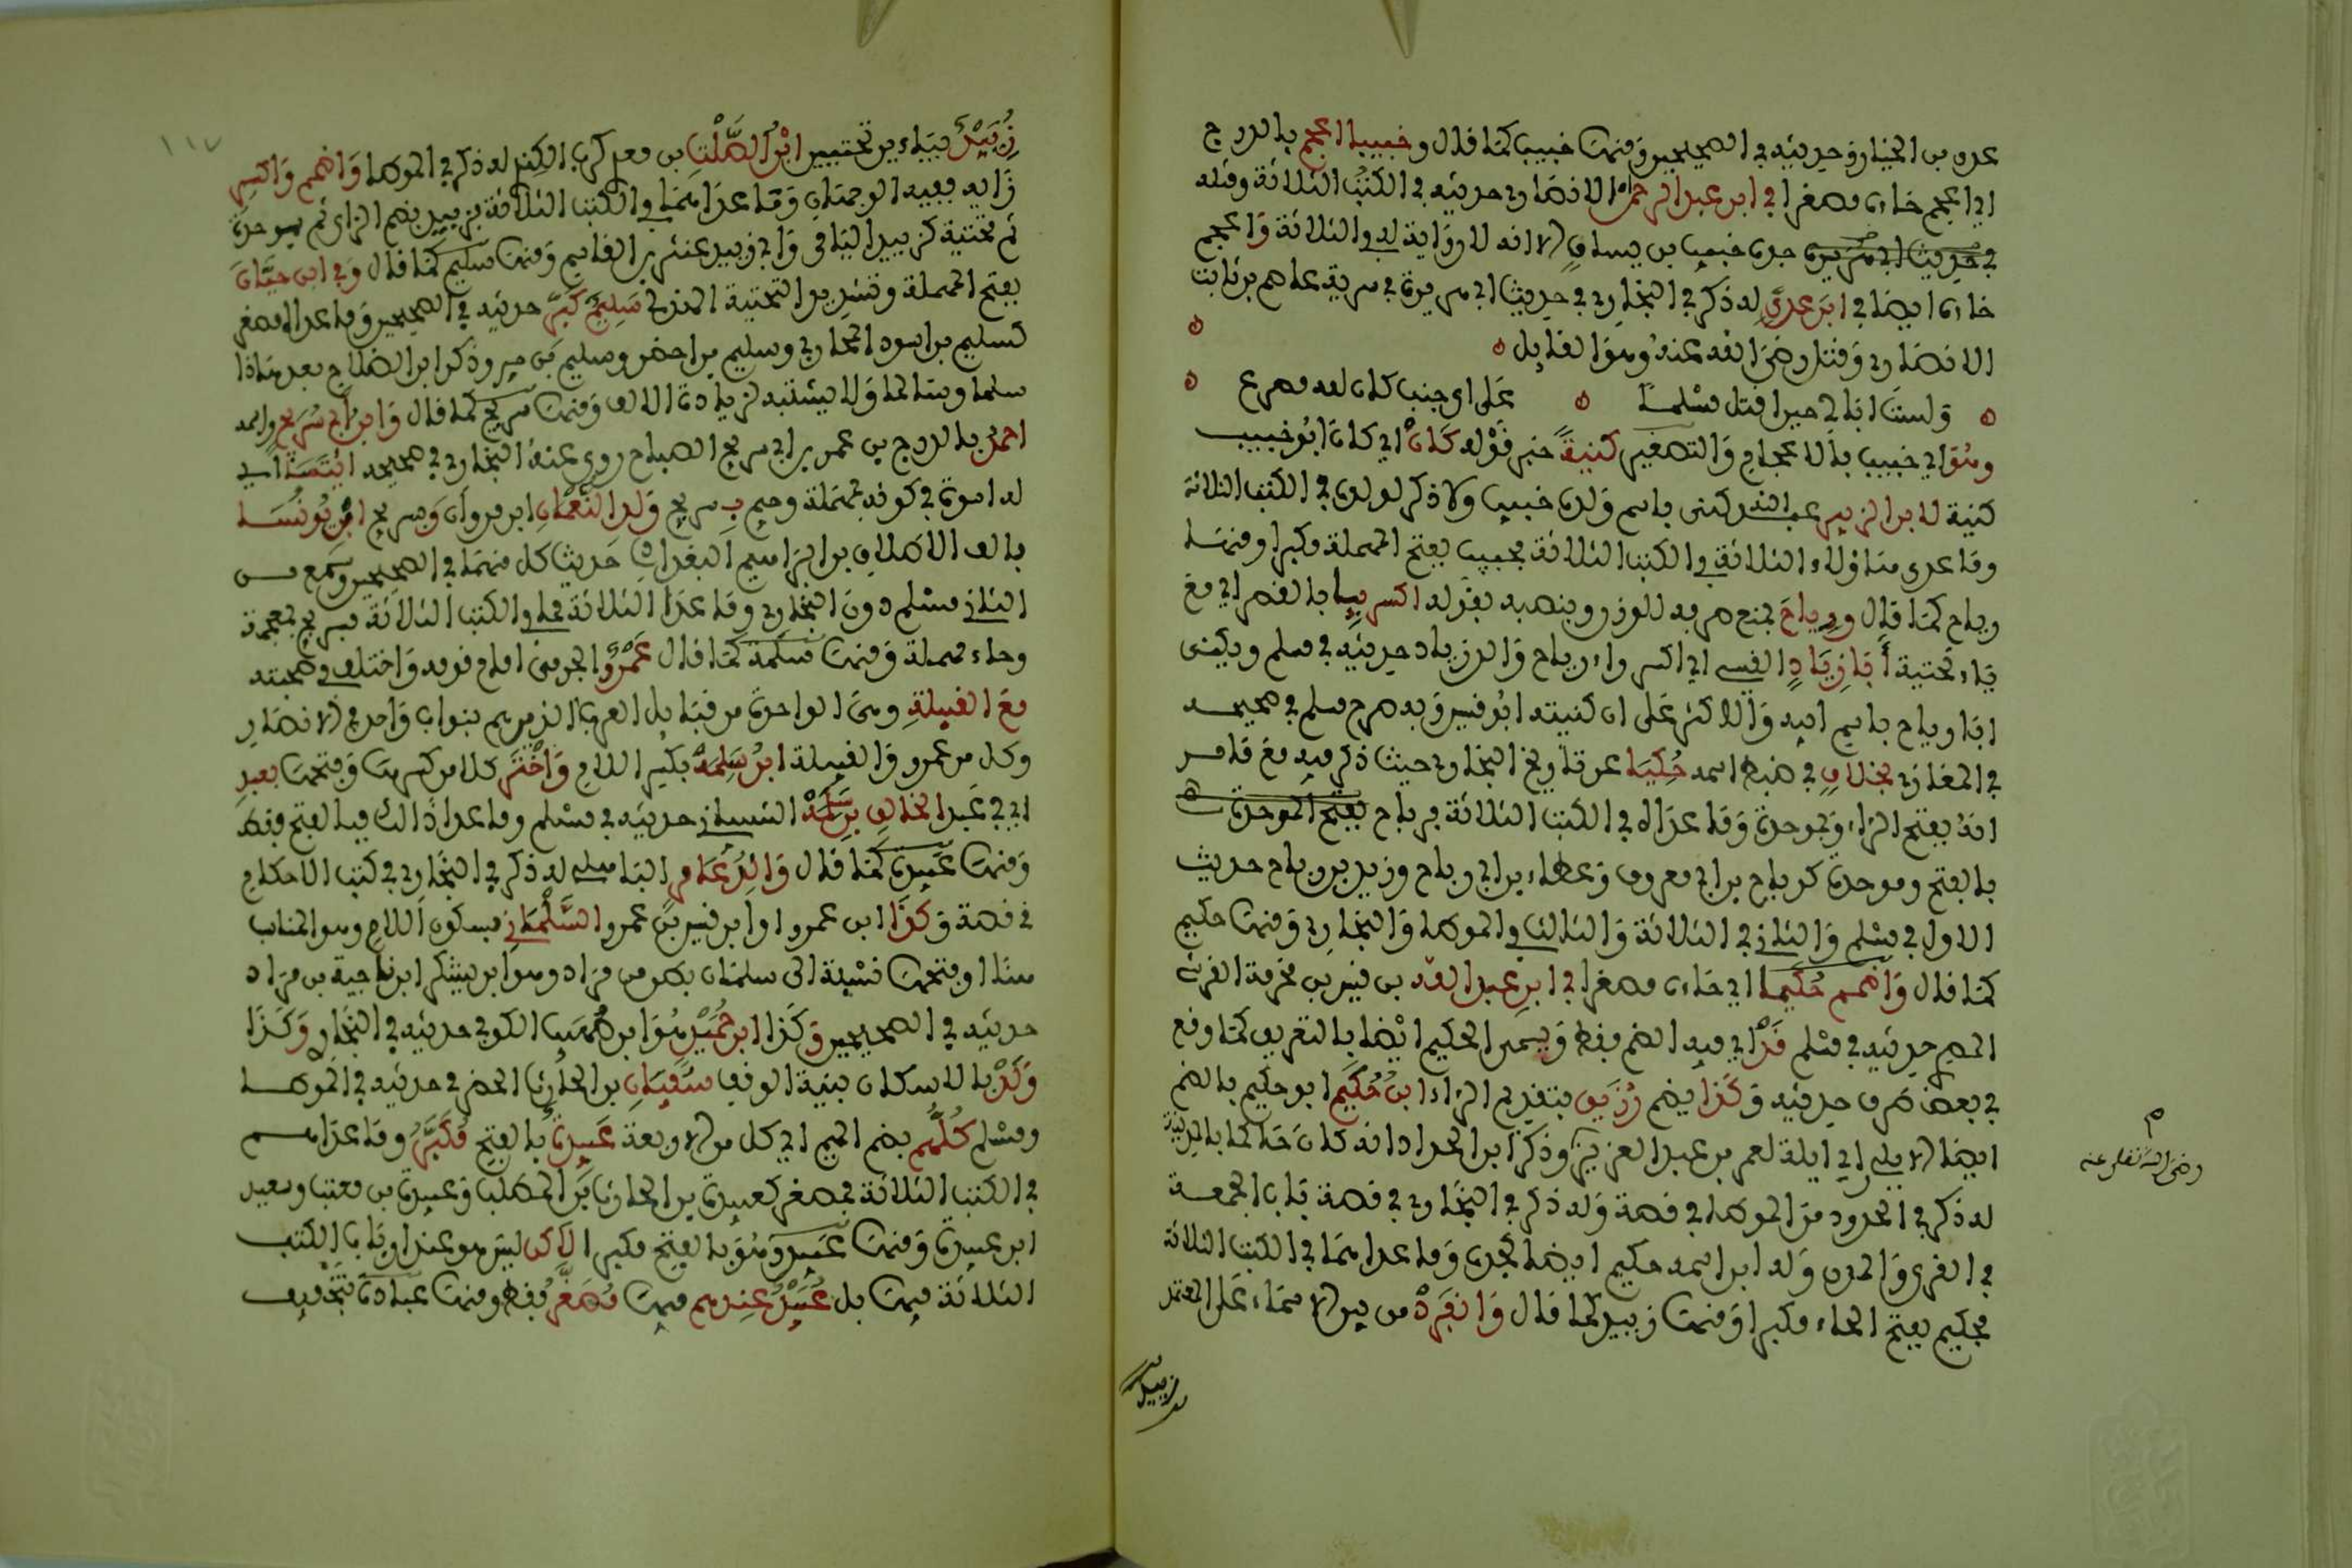 عدي بن الخيار وحديثه في الصحيحين ومنها خبيب كما قال وخبيبا اعجم بالدرج
اي اعجم خاءه مصغرا في ابن عبد الرحمن الانصاري حديثه في الكتب الثلاثة وقبله
في حديث ابي هريرة جده خبيب بن يساف لانه لا رواية له في الثلاثة واعجم
خاءه ايضا في ابن عدي له ذكر في البخاري في حديث ابي هريرة في سرية عاصم بن ثابت
الانصاري وقتل رضي الله عنه وهو القايل
ولست ابالي حين اقتل مسلما على اي جنب كان لله مصرع
وهو اي خبيب بالاعجام والتصغير كنية خبر قوله كان اي كان ابو خبيب
كنية لابن الزبير عبد الله كني باسم ولده خبيب ولا ذكر لولده في الكتب الثلاثة
وما عدى هاؤلاء الثلاثة في الكتب الثلاثة فحبيب بفتح المهملة مكبرا ومنها
رياح كما قال ورياح بمنع صرفه للوزن وبنصبه بقوله اكسر بيا بالقصر اي مع
ياء تحتية أبا زياد القسي اي اكسر راء رياح والد زياد حديثه في مسلم ويكنى
ابا رياح باسم ابيه والاكثر على ان كنيته ابو قيس وبه صرح مسلم في صحيحه
في المغازي بخلاف في ضبط اسمه حكيا عن تاريخ البخاري حيث ذكر فيه مع ما مر
انه بفتح الراء وبموحدة وما عداه في الكتب الثلاثة فرباح بفتح الموحدة
بالفتح وموحدة كرباح بن ابي معروف وعطاء بن ابي رباح وزيد بن رباح حديث
الاول في مسلم والثاني في الثلاثة والثالث في الموطا والبخاري ومنها حكيم
كما قال واضمم حكيما اي حاءه مصغرا في ابن عبد الله بن قيس بن مخرمة القرشي
المصري حديثه في مسلم قد اي فيه الضم فقط ويسمى الحكيم ايضا بالتعريف كما وقع
في بعض طرق حديثه وكذا يضم رزيق بتقديم الراء ابن حكيم ابو حكيم بالضم
ايضا الايلي اي ايلة لعمر بن عبد العزيز وذكر ابن الحذاء انه كان حاكما بالمدينة
له ذكر في الحدود من الموطا في قصة وله ذكر في البخاري في قصة باب الجمعة
في القرى والمدن وله ابن اسمه حكيم ايضا كجده وما عداهما في الكتب الثلاثة
فحكيم بفتح الحاء مكبرا ومنها زبيد كما قال وانفرد من بين الاسماء على المعتمد
رضي الله تعلى عنه
زبيد
١١٧
زييد بياءين تحتيين ابن الصلت بن معدي كرب الكندي له ذكر في الموطا واضمم واكسر
زايه ففيه الوجهان وما عداهما في الكتب الثلاثة فزبيد بضم الزاي ثم موحدة
ثم تحتية كزبيد اليامي وابي زبيد عبثر بن القاسم ومنها سليم كما قال وفي ابن حيان
بفتح المهملة وتشديد التحتية الهذلي سليم كبر حديثه في الصحيحين وما عداه مصغر
كسليم بن اسود المحاربي وسليم بن اخضر وسليم بن جبير وذكر ابن الصلاح بعد هاذا
سلما وسالما ولا يشتبه لزيادة الالف ومنها سريج كما قال وابن ابي سريج واسمه
احمد بالدرج بن عمر بن ابي سريج الصباح روى عنه البخاري في صحيحه ائتسا اي
له اسوة في كونه بمهملة وجيم بسريج ولد النعمان ابن مروان وسريج ابن يونسا
بالف الاطلاق بن ابراهيم البغدادي حديث كل منهما في الصحيحين وسمع من
الثاني مسلم دون البخاري وما عدا الثلاثة مما في الكتب الثلاثة فشريح بمعجمة
وحاء مهملة ومنها سلمة كما قال عمرو الجرمي امام قومه واختلف في صحبته
مع القبيلة وهي الواحدة من قبايل العرب الذين هم بنو اب واحد في الانصار
وكل من عمرو والقبيلة ابن سلمة بكسر اللام واختر كلا من كسرها وفتحها بعبد
اي في عبد الخالق بن سلمة الشيباني حديثه في مسلم وما عدا ذالك فبالفتح فقط
ومنها عبيدة كما قال والد عامر الباهلي له ذكر في البخاري في كتب الاحكام
في قصة وكذا ابن عمرو او ابن قيس بن عمرو السلماني بسكون اللام وهو المناسب
هنا او فتحها نسبة الى سلمان بطن من مراد وهو ابن يشكر ابن ناجية بن مراد
حديثه في الصحيحين وكذا ابن حميد هو ابن صهيب الكوفي حديثه في البخاري وكذا
وكد بالاسكان بنية الوقف سفيان بن الحارث الحضرمي حديثه في الموطا
ومسلم كلهم بضم الميم اي كل من الاربعة عبيدة بالفتح مكبر وما عداهم
في الكتب الثلاثة فمصغر كعبيدة بن الحارث بن المطلب وعبيدة بن معتب وسعيد
ابن عبيدة ومنها عبيد وهو بالفتح مكبرا لاكن ليس هو عند ارباب الكتب
الثلاثة فيها بل عبيد عندهم فيها مصغر فقط ومنها عبادة بتخفيف